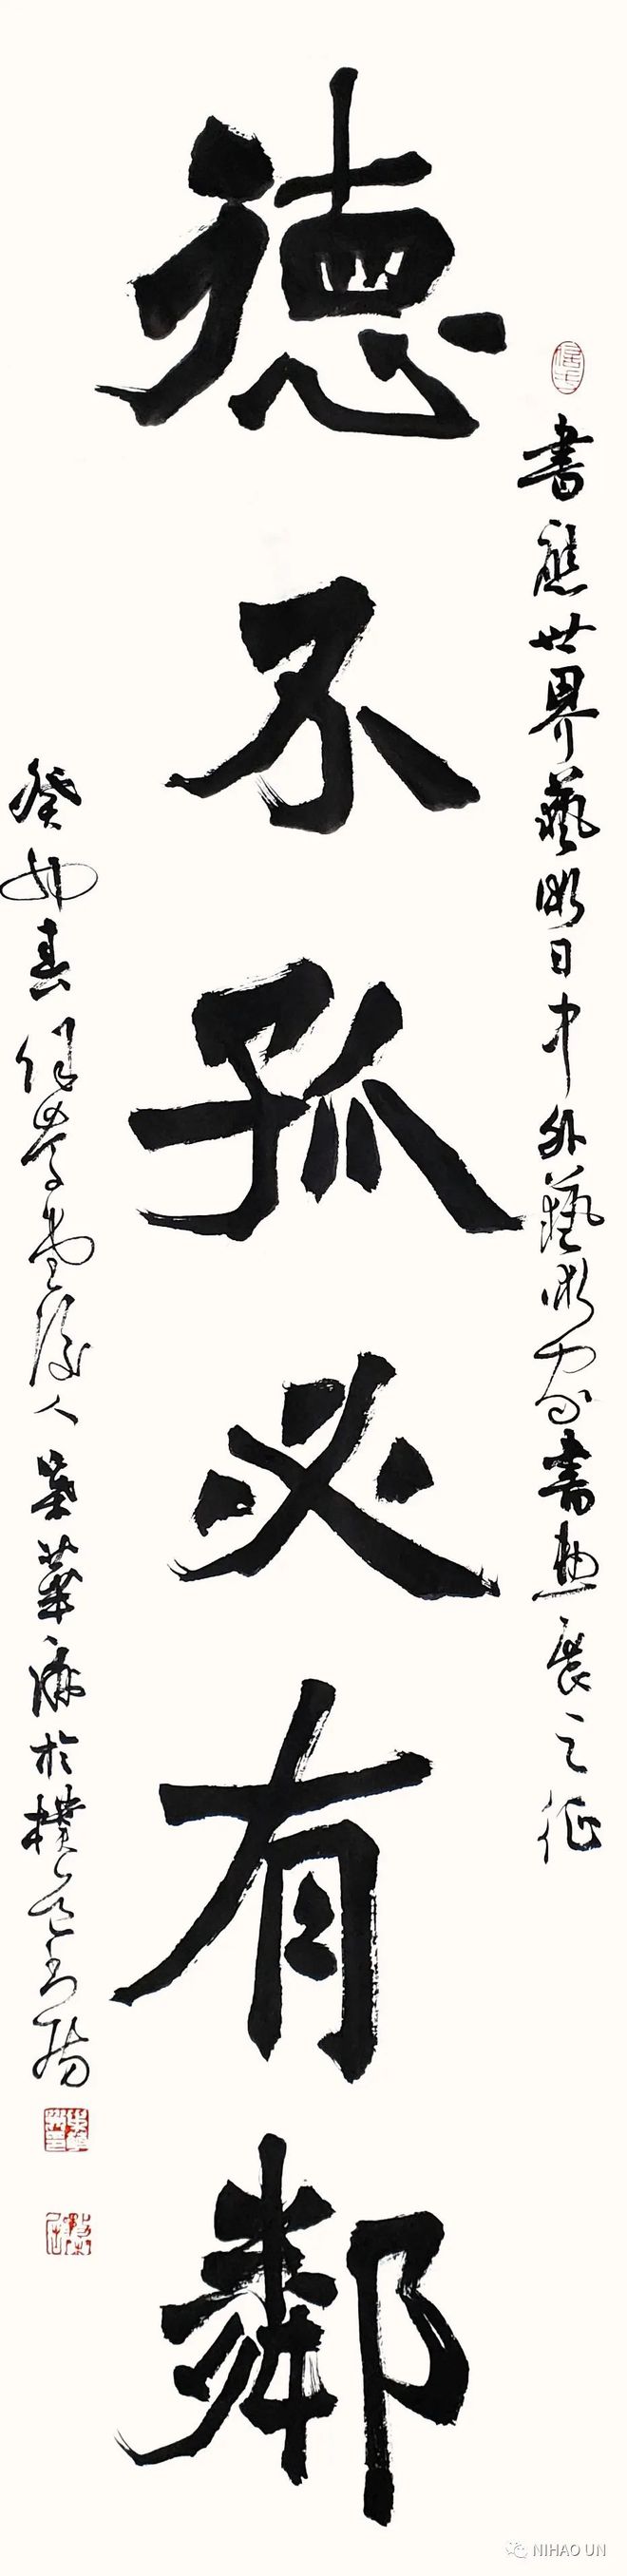 書應世界藝術日中外藝術家書畫展之征
德不孤必有鄰
癸卯春堂後人華於樸
NIHAO UN